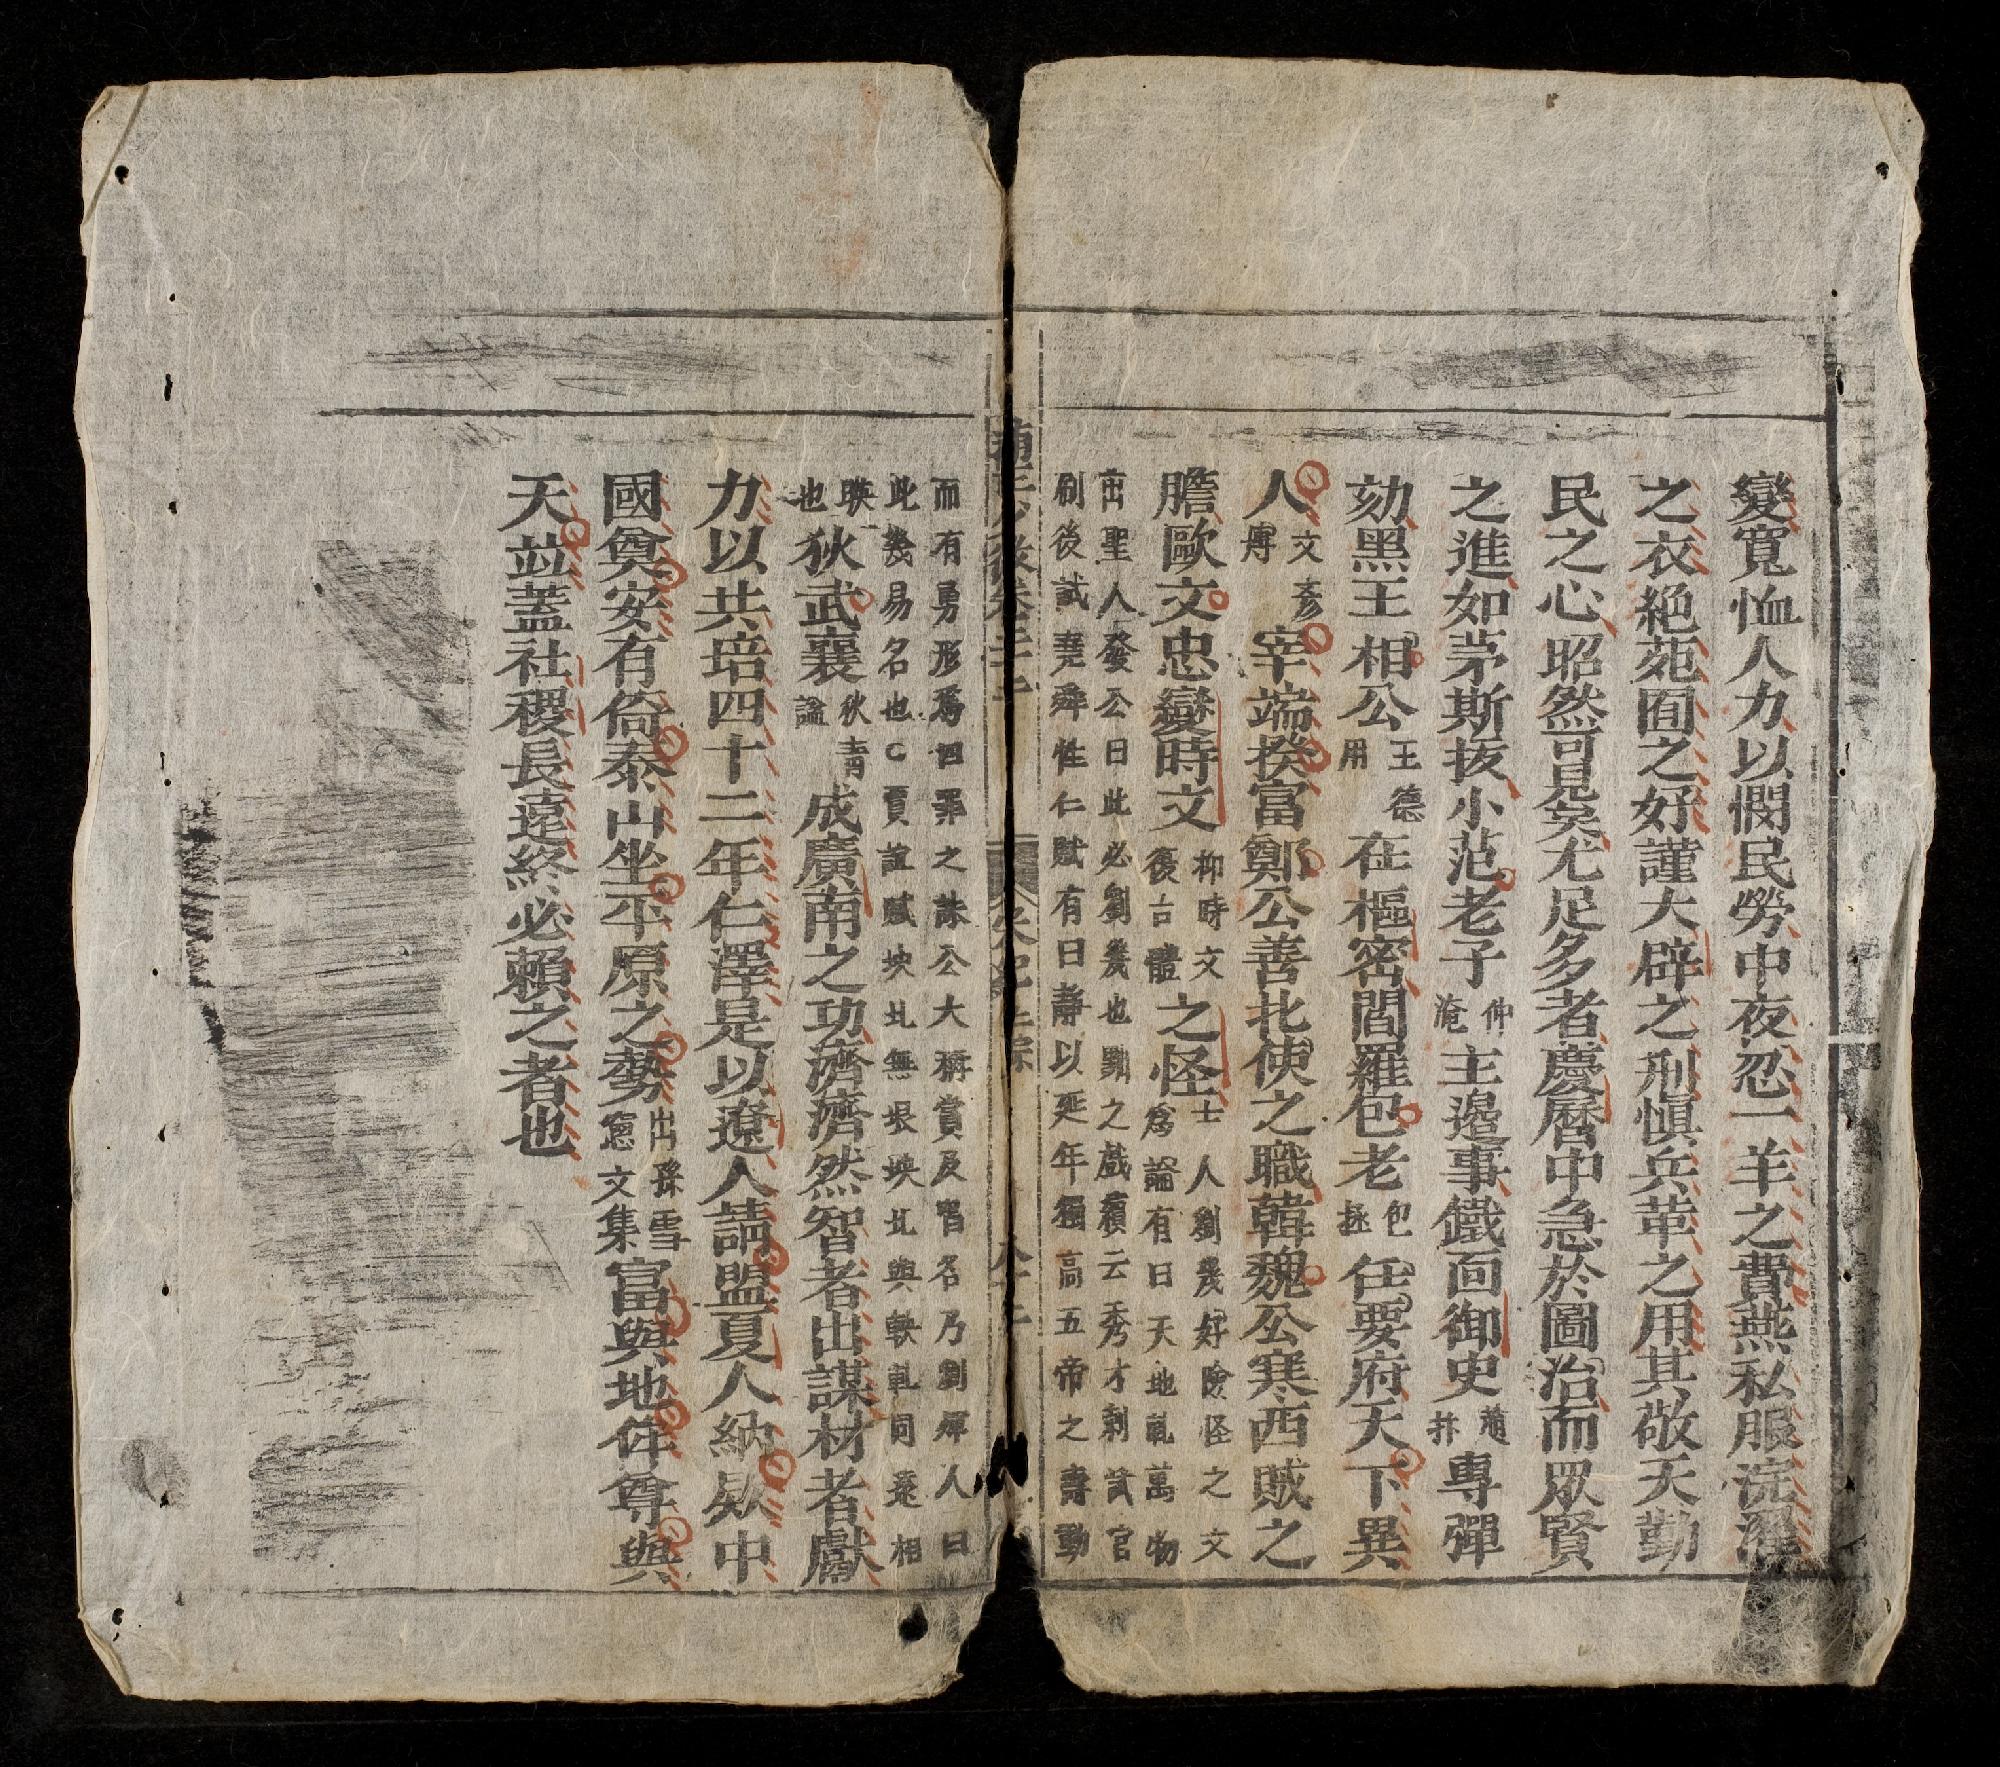 變寬恤人力以憫民勞中夜忍一羊之費燕私服浣濯
之衣絶苑囿之好謹大辟之刑愼兵革之用其敬天勤
民之心昭然可見矣尤足多者慶曆中急於圖治而眾賢
之進如茅斯拔小范老子仲淹主邊事鐵面御史趙抃專彈
劾黑王相公王德用在樞密閻羅包老包拯任要府天下異
人文彦博宰端揆富鄭公善北使之職韓魏公寒西賊之
膽歐文忠變時文抑時文復古體之怪士人劉幾好險怪之文
爲論有曰天地軋萬物
茁聖人發公曰此必劉幾也黜之戲續云秀才剌試官
刷後試堯舜性仁賦有曰靜以延年獨高五帝之壽動
而有勇形爲四罪之誅公大稱賞及唱名乃劉煇人曰
此幾易名也○賈誼賦坱圠無垠坱圠與軮軋同遠相
映也狄武襄狄青諡成廣南之功濟濟然智者出謀材者獻
力以共培四十二年仁澤是以遼人請盟夏人納欵中
國奠安有倚泰山坐平原之勢出孫雪窓文集富與地侔尊與
天並蓋社稷長遠終必賴之者也